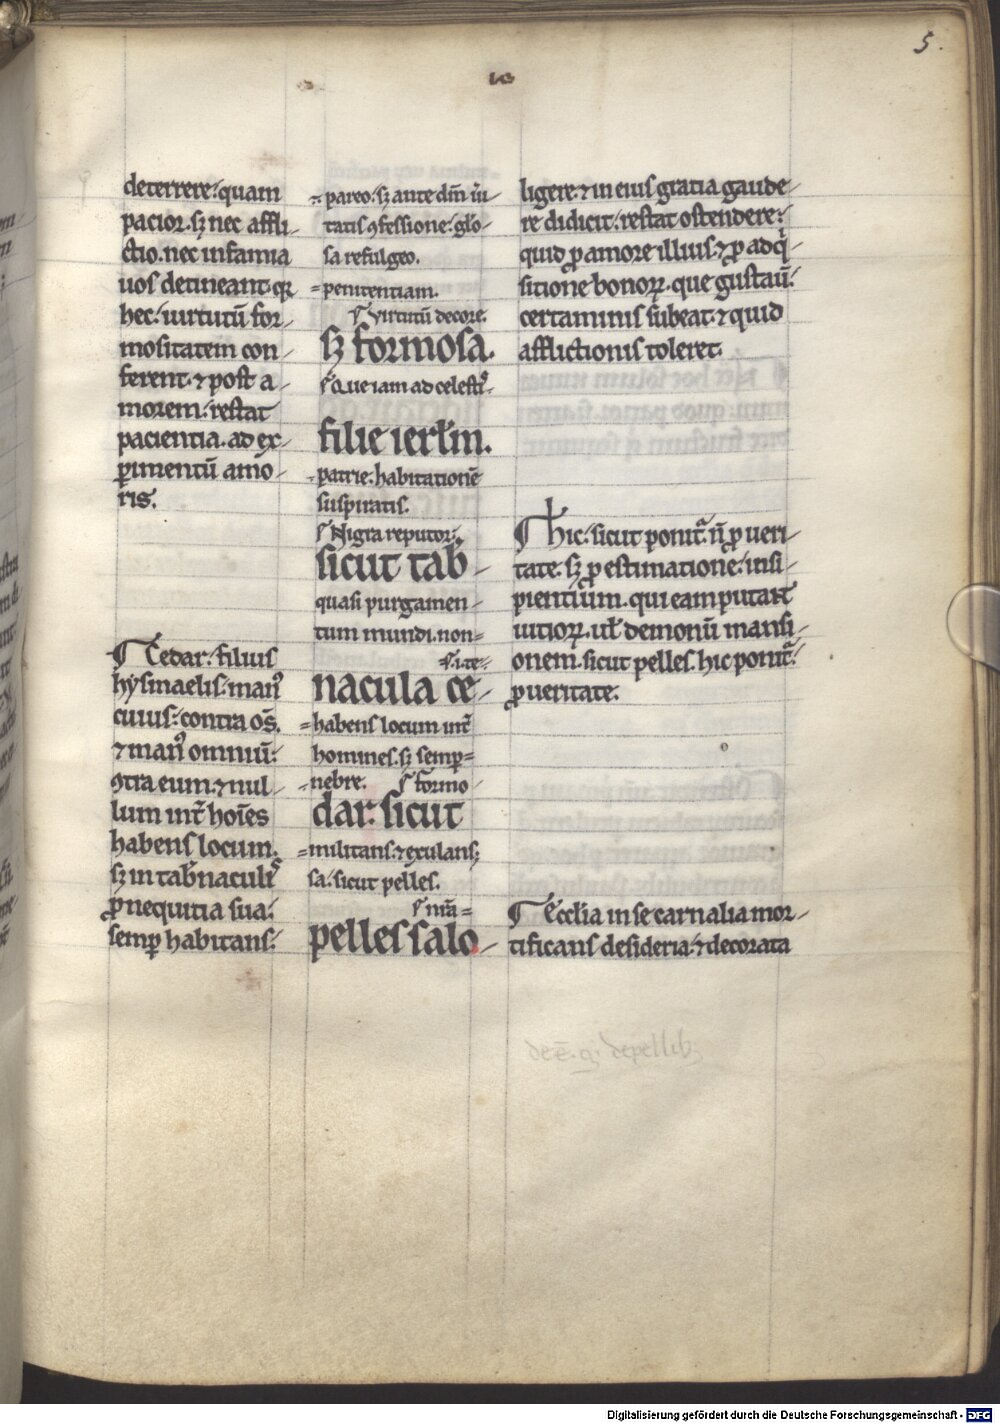 5.
deterrere: quam
pacior. sꝫ nec affli-
ctio. nec infamia
uos detineant. qꝛ
hec: uirtutū for-
mositatem con-
ferent. ⁊ post a-
morem: restat
pacientia. ad ex-
ꝑimentū amo-
ris.
¶ Cedar: filius
hysmaelis: man᷒
cuius: contra oſ̄.
⁊ man᷒ omniū:
ꝯtra eum: ⁊ nul-
lum int̄ hoīes
habens locum.
sꝫ in tab̄naculis
ꝓ nequitia sua:
semꝑ habitans:
pareo: sꝫ ante dn̄m ū̓i-
tatis ꝯfessione: glō-
sa refulgeo.
=penitentiam.
virtutū decore.
sꝫ formosa.
Que iam ad celestis-
filie ierl̄m.
-patrie: habitationē
suspiratis.
Nigra reputor:
sicut tab̄-
quasi purgamen-
tum mundi. non=
.i. te-
nacula ce-
=habens locum int̄
homines. sꝫ semꝑ=
-nebre. formo
dar: sicut
=militans: ⁊ exulans;
sa: sicut pelles.
mā=
pelles salo-
ligere: ⁊ in eius gratia gaude-
re didicit: restat ostendere:
quid ꝓ amore illius: ⁊ ꝓ adqͥ-
sitione bonoꝝ. que gustaū:
certaminis subeat: ⁊ quid
afflictionis toleret.
¶ hic: sicut ponit᷑ n̄ ꝓ ueri-
tate. sꝫ ꝓ estimatione: insi-
pientium. qui eam putant
uitioꝝ. ul̄ demonū mansi-
onem. sicut pelles. hic ponit᷑:
ꝓ ueritate.
¶ Eccl̄ia in se carnalia mor-
tificans desideria: ⁊ decorata
Digitalisierung gefördert durch die Deutsche Forschungsgemeinschaft - DFG